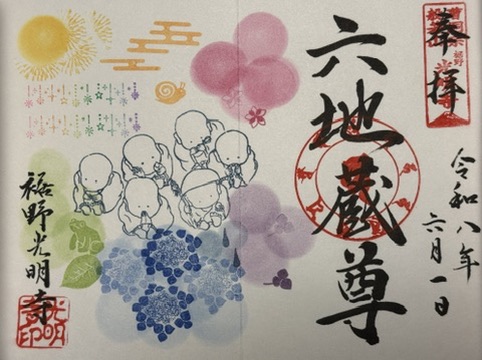 奉拝
六地蔵尊
令和八年
六月一日
裾野光明寺
光明寺印